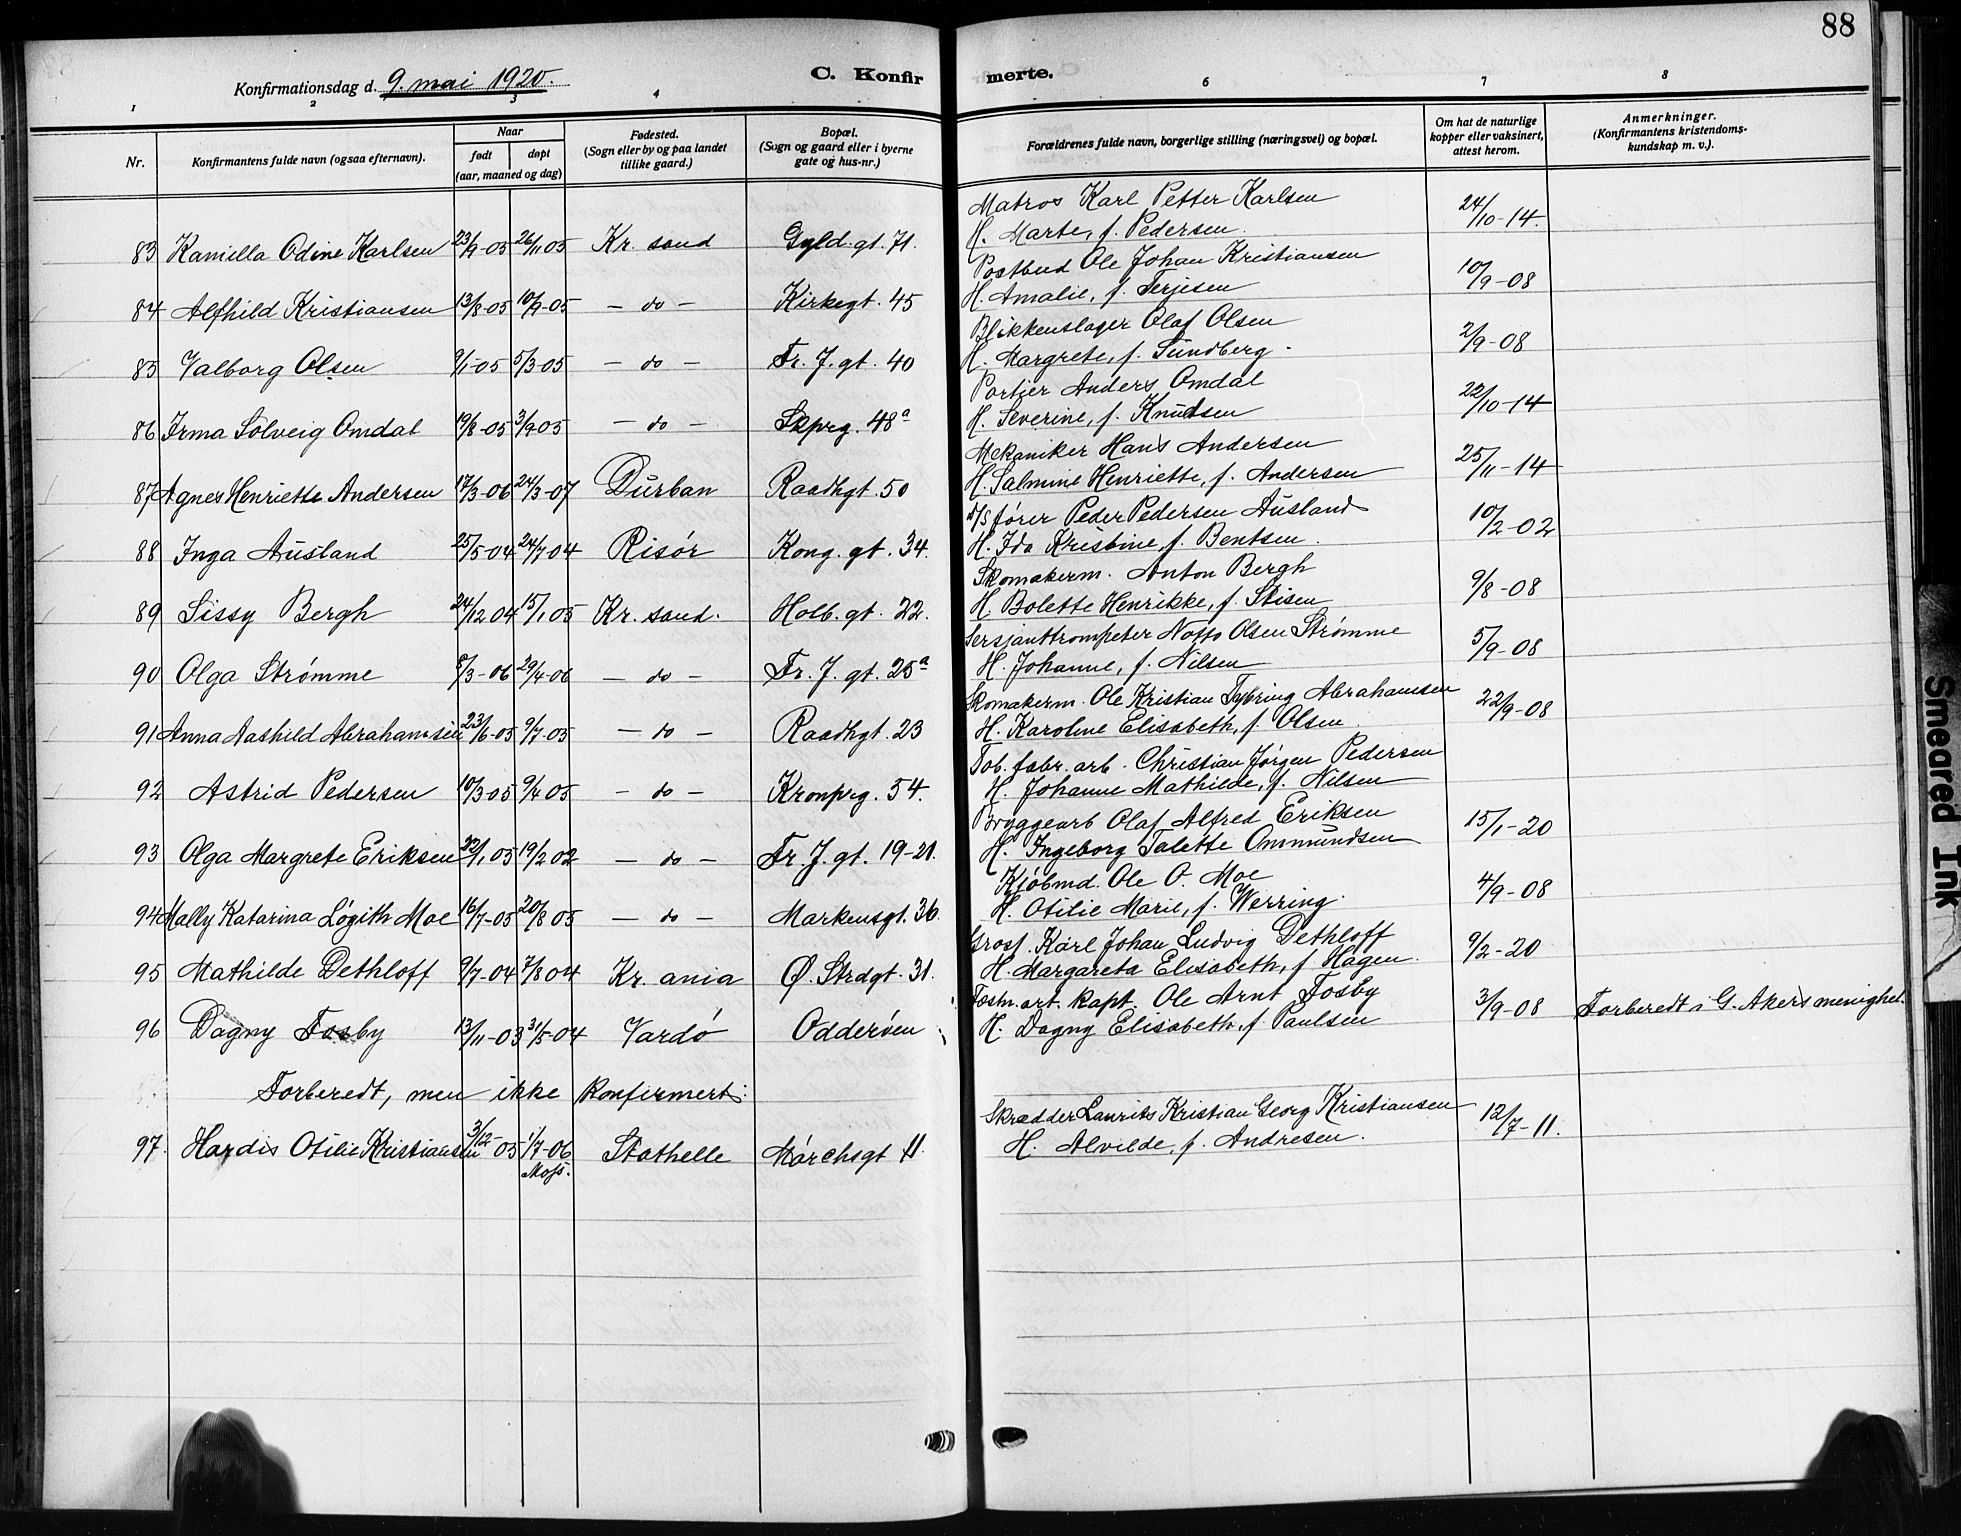 88
Konfirmationsdag d. 9. mai 1920.
C. Konfirmerte.
1 2 3 4 6 7 8
Nr. Konfirmantens fulde navn (ogsaa efternavn). Naar født døpt (aar, maaned og dag) Fødested. (Sogn eller by og paa landet tillike gaard.) Bopæl. (Sogn og gaard eller i byerne gate og hus-nr.) Forældrenes fulde navn, borgerlige stilling (næringsvei) og bopæl. Om hat de naturlige kopper eller vaksinert, attest herom. Anmerkninger. (Konfirmantens kristendoms-kundskap m. v.).
Matros Karl Petter Karlsen 24/10-14.
83 Kamilla Odine Karlsen 23/9-05 26/11 05 Kr. sand Gyld. gt. 71. H. Marte, f. Pedersen.
Postbud Ole Johan Kristiansen 10/9-08
84 Alfhild Kristiansen 13/8-05 10/9-05 - do - Kirkegt. 45 H. Amalie, f. Terjesen
Blikkenslager Olaf Olsen 2/9-08
85 Valborg Olsen 9/1-05 5/3-05 - do - Fr. J. gt. 40 H. Margrete, f. Sundberg.
Portier Anders Omdal 22/10-14
86 Irma Solveig Omdal 19/8-05 3/9 05 - do - Skprg. 48a H. Severine, f. Knudsen
Mekaniker Hans Andersen 25/11-14
87 Agnes Henriette Andersen 17/3-06 24/3-07 Durban Raadhgt. 50 H. Salmine Henriette, f. Andersen
D/S fører Peder Pedersen Ausland 10/2-02
88 Inga Ausland 25/5-04 24/7-04 Risør Kong. gt. 34. H. Ida Kristine, f. Bentsen.
Skomakerm. Anton Bergh 9/8-08
89 Sissy Bergh 24/12 04 15/1 05 Kr. sand. Holb. gt. 22. H. Bolette Henrikke, f. Stisen
Sersjanttrompeter Notto Olsen Strømme 5/9-08
90 Olga Strømme 8/3-06 29/4-06 - do - Fr. J. gt. 25a H. Johanne, f. Nilsen
Skomakerm. Ole Kristian Tybring Abrahamsen 22/9-08
91 Anna Aashild Abrahamsen 23/6-05 9/7-05 - do - Raadhgt. 23 H. Karoline Elisabeth, f. Olsen.
Tob. fabr. arb. Christian Jørgen Pedersen
92 Astrid Pedersen 10/3-05 9/4 05 - do - Kronprg. 54. H. Johanne Mathilde, f. Nilsen
Bryggearb Olaf Alfred Eriksen 15/1-20
93 Olga Margrete Eriksen 22/1 05 19/2 02 - do - Fr. J. gt. 19-21. H. Ingeborg Talette Ommundsen
Kjøbmd. Ole O. Moe 4/9-08
94 Mally Katarina Løgith Moe 16/7-05 20/8 05 - do - Markensgt. 36. H. Otilie Marie, f. Werring.
Gross. Karl Johan Ludvig Dethloff 9/2-20
95 Mathilde Dethloff 9/7-04 7/8 04 Kr. ania Ø. Strdgt. 31. H. Margareta Elisabeth, f Hagen.
Fæstn. art. kapt. Ole Arnt Fosby 3/9-08 Forberedt i G. Akers menighet.
96 Dagny Fosby 13/11-03 31/5-04 Vardø Odderøen H. Dagny Elisabeth, f. Paulsen
Forberedt, men ikke konfirmert:
Skrædder Laurits Kristian Georg Kristiansen 12/7-11.
97. Hardis Otilie Kristiansen 3/12-05 1/7-06 Stathelle Mørchsgt 11. H. Alvilde, f. Andresen.
Moss.
Smeared Ink